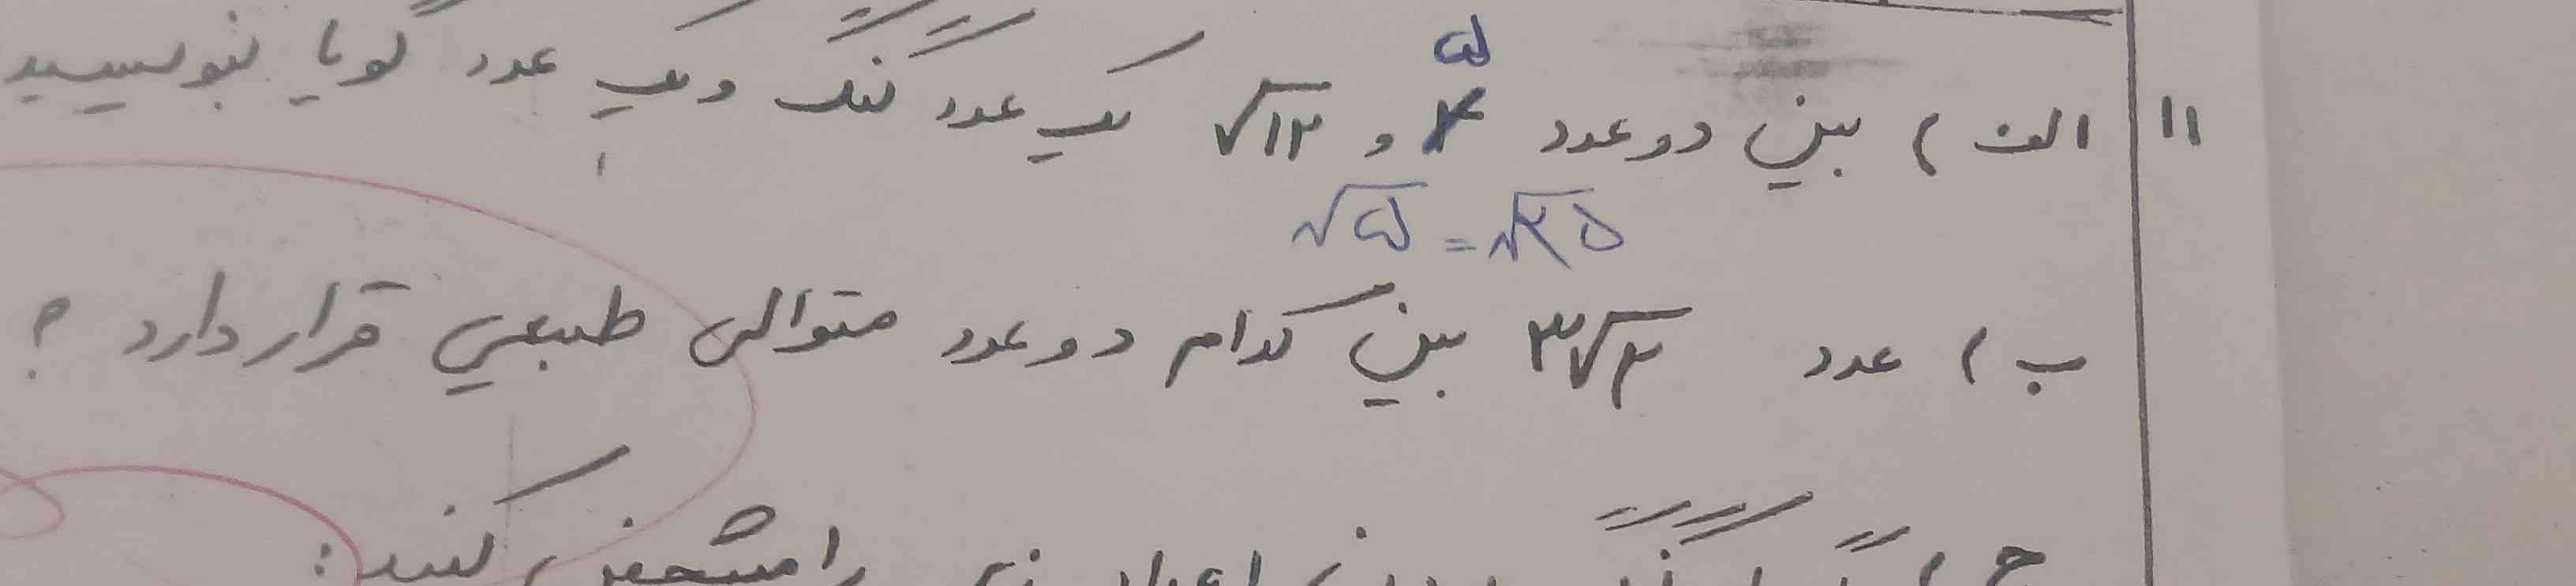 ۵
۱۱ الف) بین دو عدد ۴ و √۱۲ یک عدد گنگ و یک عدد گویا بنویسید
√۵ = √۲۵
ب) عدد ۳√۲ بین کدام دو عدد متوالی طبیعی قرار دارد ؟
ج) را مشخص کنید: